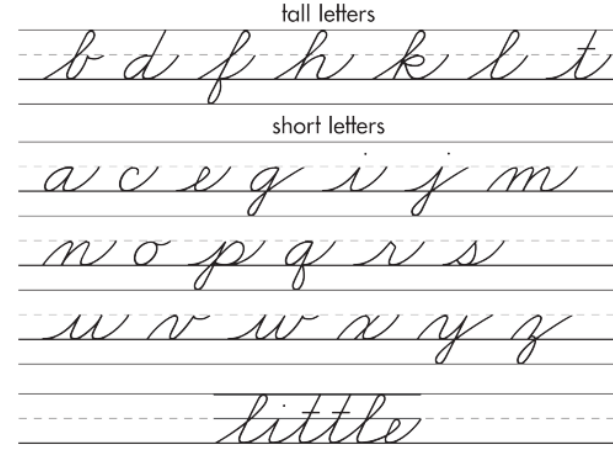 tall letters
b d f h k l t
short letters
a c e g i j m
n o p q r s
u v w x y z
little